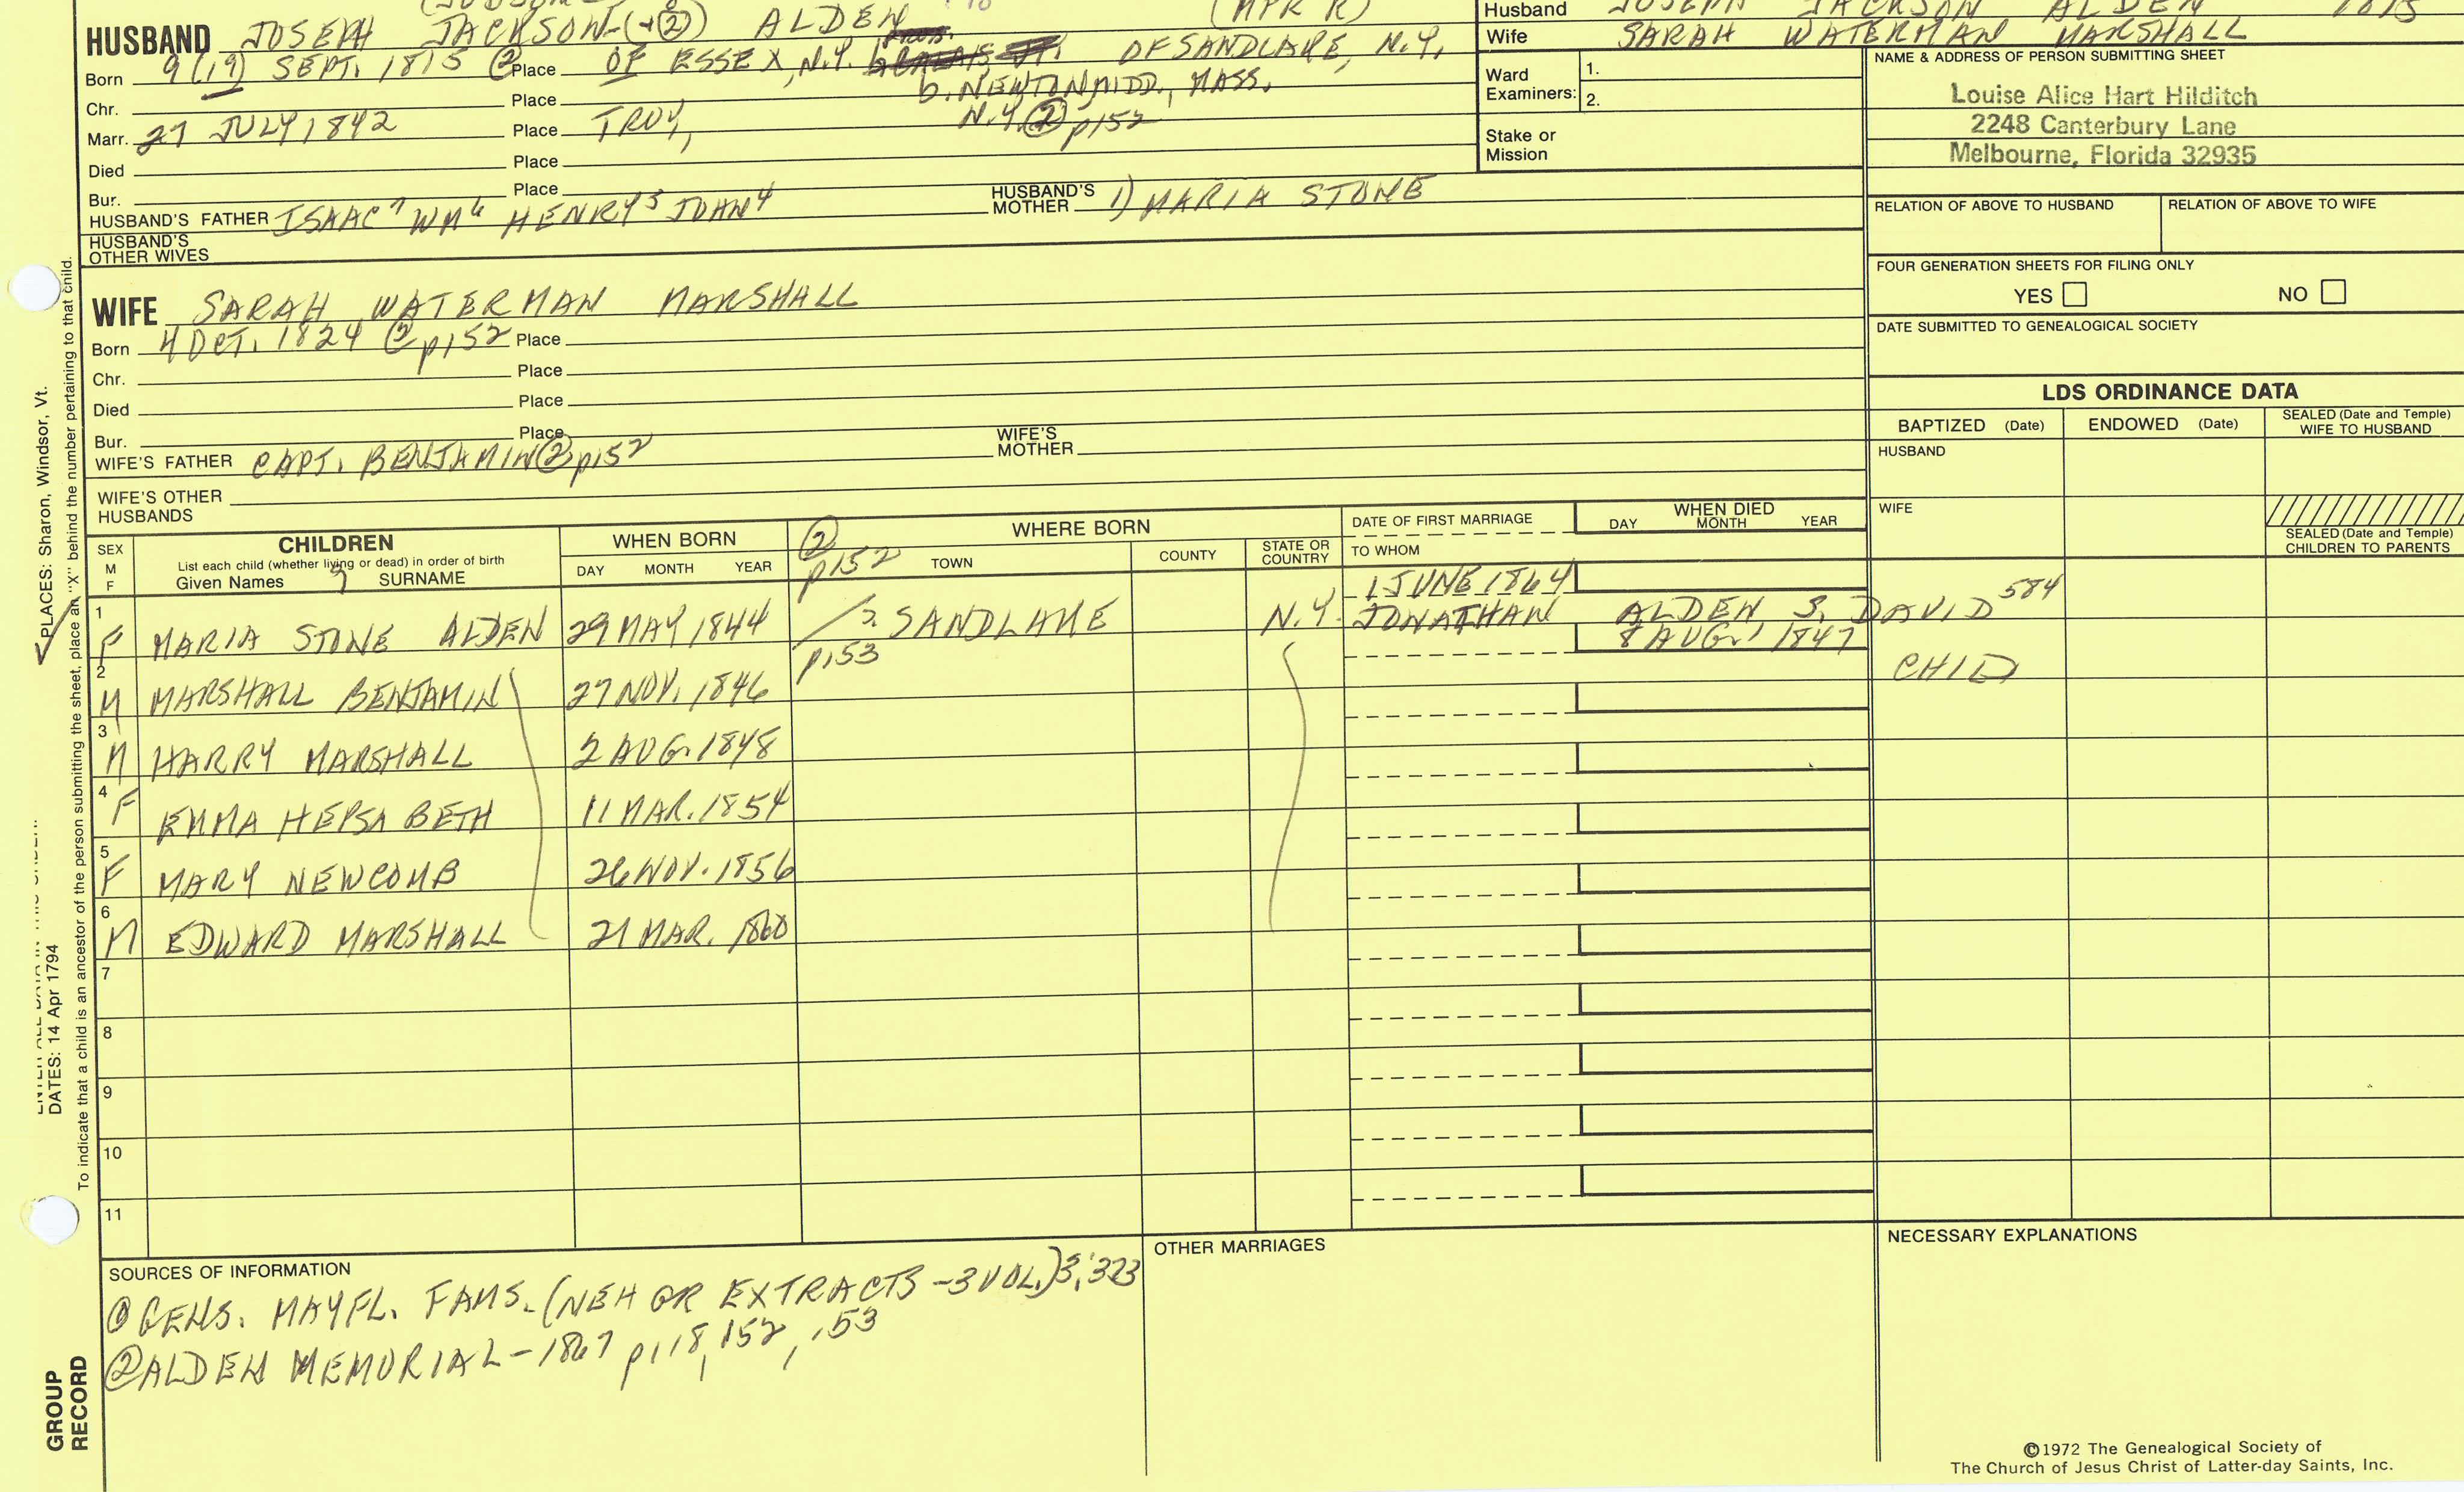 HUSBAND JOSEPH JACKSON-(+②) ALDEN (MPR R)
Born 9 (19) SEPT. 1815 ② Place OF ESSEX, N.Y. OF SANDLAKE, N.Y.
b. NEWTON, MIDD., MASS.
Chr. Place
Marr. 27 JULY 1842 Place TROY, N.Y. ② p152
Died Place
Bur. Place
HUSBAND'S FATHER ISAAC⁷ WM⁶ HENRY⁵ JOHN⁴ HUSBAND'S MOTHER 1) MARIA STONE
HUSBAND'S OTHER WIVES
Husband JOSEPH JACKSON ALDEN 1815
Wife SARAH WATERMAN MARSHALL
Ward Examiners: 1.
2.
Stake or Mission
NAME & ADDRESS OF PERSON SUBMITTING SHEET
Louise Alice Hart Hilditch
2248 Canterbury Lane
Melbourne, Florida 32935
RELATION OF ABOVE TO HUSBAND RELATION OF ABOVE TO WIFE
FOUR GENERATION SHEETS FOR FILING ONLY
YES NO
DATE SUBMITTED TO GENEALOGICAL SOCIETY
WIFE SARAH WATERMAN MARSHALL
Born 4 OCT. 1824 ② p152 Place
Chr. Place
Died Place
Bur. Place
WIFE'S FATHER CAPT. BENJAMIN ② p152 WIFE'S MOTHER
WIFE'S OTHER HUSBANDS
LDS ORDINANCE DATA
BAPTIZED (Date) ENDOWED (Date) SEALED (Date and Temple) WIFE TO HUSBAND
HUSBAND
WIFE
SEALED (Date and Temple) CHILDREN TO PARENTS
SEX M F
CHILDREN
List each child (whether living or dead) in order of birth
Given Names 9 SURNAME
WHEN BORN
DAY MONTH YEAR
② p152
WHERE BORN
TOWN COUNTY STATE OR COUNTRY
DATE OF FIRST MARRIAGE
TO WHOM
WHEN DIED
DAY MONTH YEAR
1 JUNE 1864
1 F MARIA STONE ALDEN 29 MAY 1844 SANDLAKE N.Y. JONATHAN ALDEN S. DAVID 584
p153 8 AUG. 1847
2 M MARSHALL BENJAMIN 27 NOV. 1846 CHILD
3 M HARRY MARSHALL 2 AUG. 1848
4 F EMMA HEPSA BETH 11 MAR. 1854
5 F MARY NEWCOMB 26 NOV. 1856
6 M EDWARD MARSHALL 21 MAR. 1860
7
8
9
10
11
SOURCES OF INFORMATION
① GENS. MAYFL. FAMS. (NEH GR EXTRACTS -3 VOL.) 3:323
② ALDEN MEMORIAL - 1867 p118, 152, 153
OTHER MARRIAGES
NECESSARY EXPLANATIONS
©1972 The Genealogical Society of
The Church of Jesus Christ of Latter-day Saints, Inc.
PLACES: Sharon, Windsor, Vt.
DATES: 14 Apr 1794
To indicate that a child is an ancestor of the person submitting the sheet, place an "X" behind the number pertaining to that child.
GROUP
RECORD